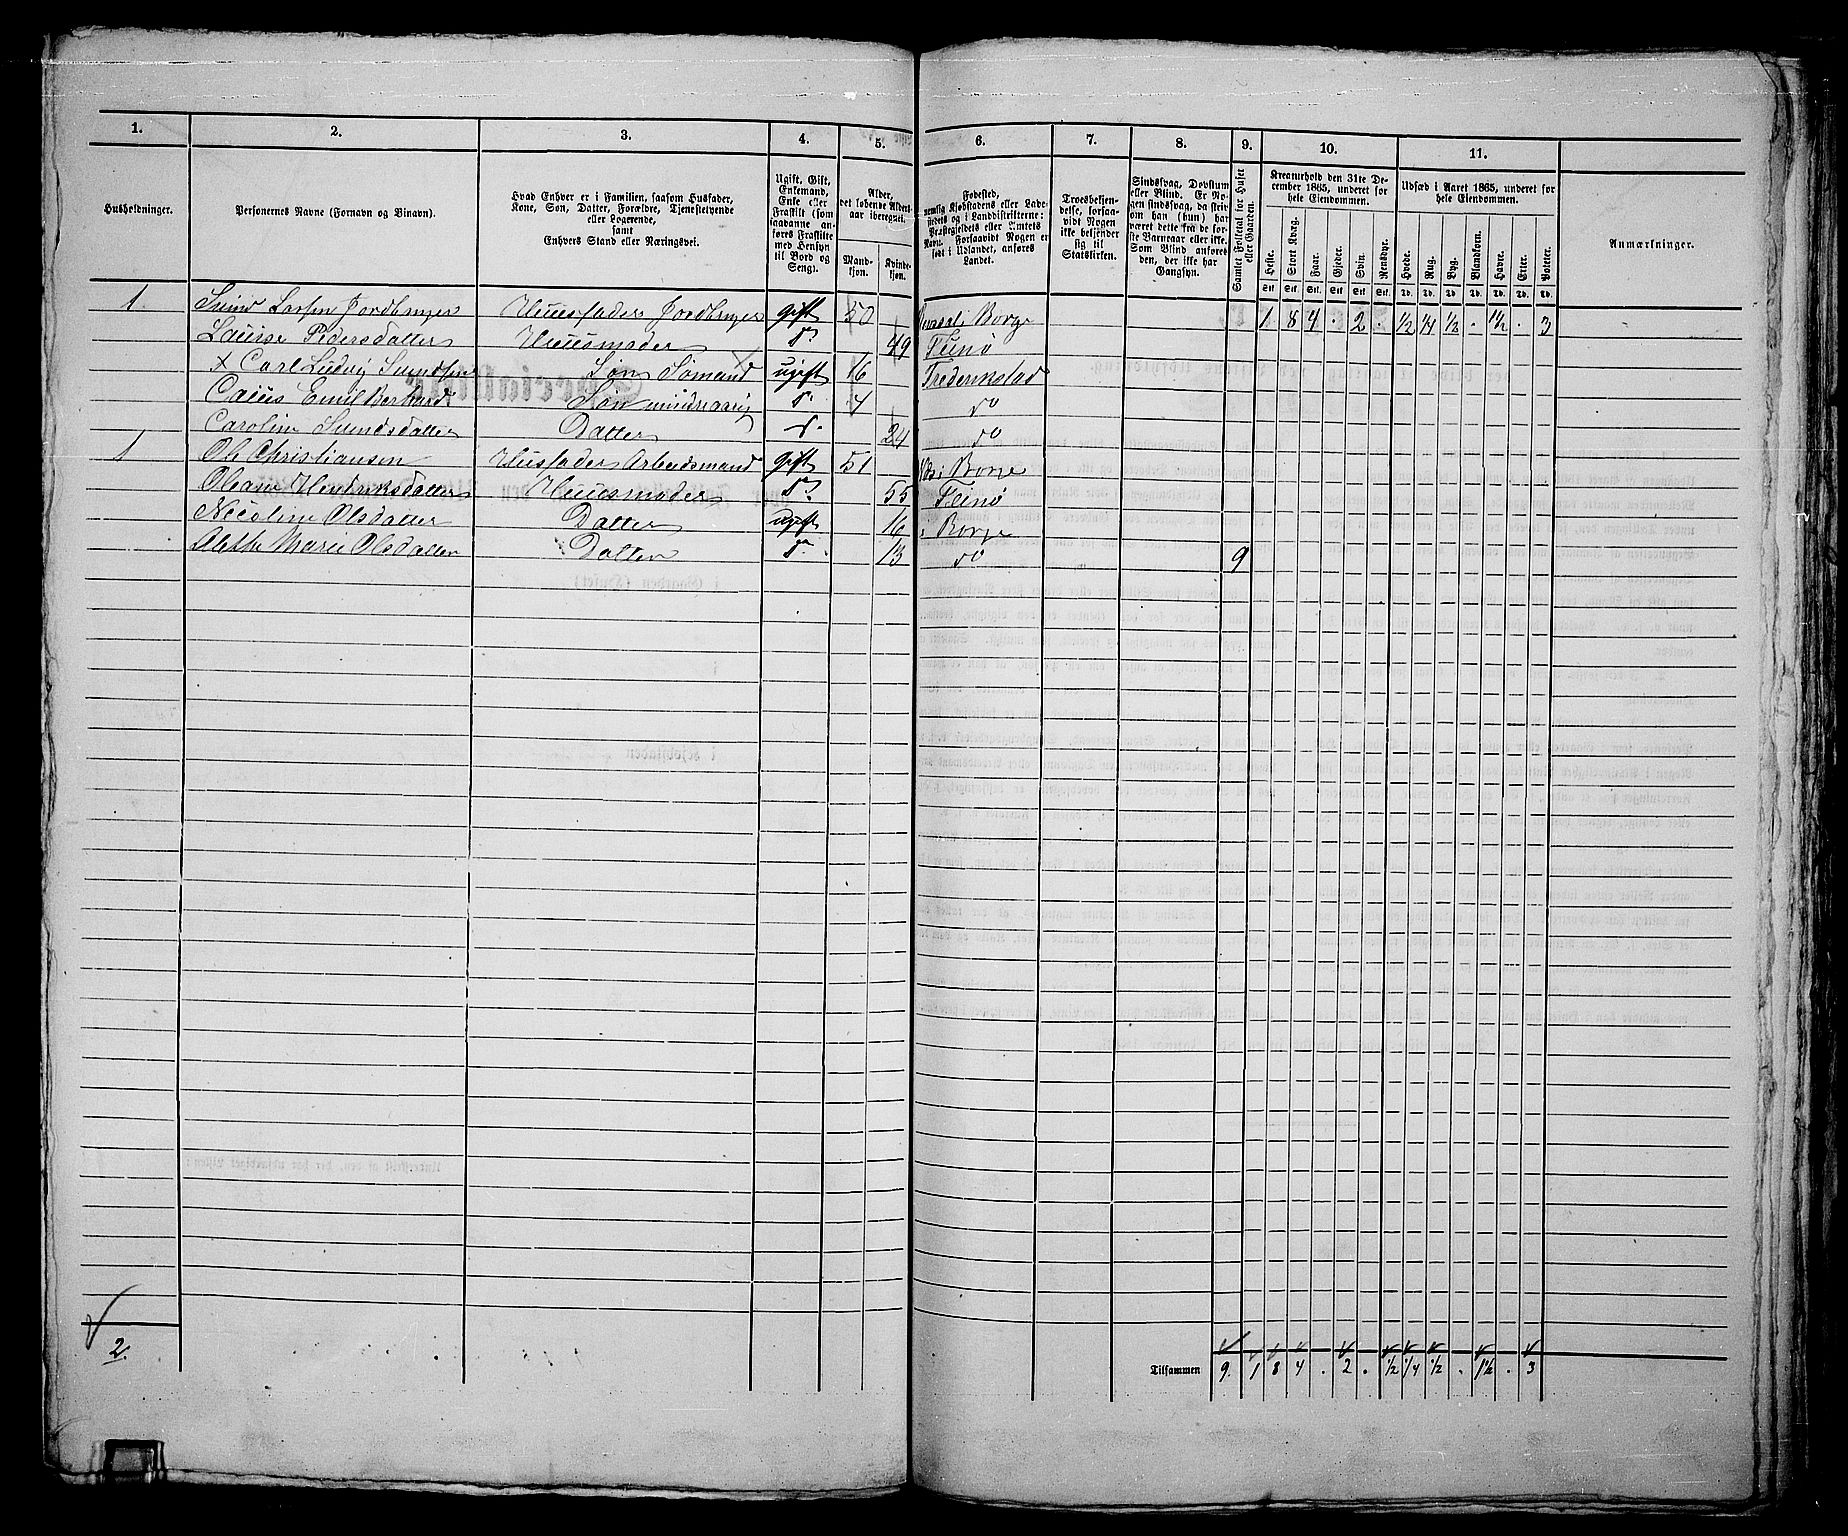 1. 2. 3. 4. 5. 6. 7. 8. 9. 10. 11.
Husholdninger.
Personernes Navne (Fornavn og Binavn).
Hvad Enhver er i Familien, saasom Husfader,
Kone, Søn, Datter, Forældre, Tjenestetyende
eller Logerende,
samt
Enhvers Stand eller Næringsvei.
Ugift, Gift,
Enkemand,
Enke eller
Fraskilt (som
saadanne an-
føres Fraskilte
med Hensyn
til Bord og
Seng).
Alder,
det løbende Alders-
aar iberegnet.
Mand-
kjøn.
Kvinde-
kjøn.
Fødested,
nemlig Kjøbstadens eller Lade-
stedets og i Landdistrikterne:
Præstegjeldets eller Amtets
Navn. Forsaavidt Nogen er
født i Udlandet, anføres
Landet.
Troesbekjen-
delse, forsaa-
vidt Nogen
ikke bekjender
sig til
Statskirken.
Sindssvag, Døvstum
eller Blind. Er No-
gen sindssvag, da skri-
ves om han (hun) har
været dette fra de før-
ste Barneaar eller ikke.
Som Blind anføres
den, der ikke har
Gangsyn.
Samlet Folketal for Huset
eller Gaarden.
Kreaturhold den 31te De-
cember 1865, underet for
hele Eiendommen.
Heste. Stort Kvæg. Faar. Gjeder. Svin. Rensdyr.
Stk. Stk. Stk. Stk. Stk. Stk.
Udsæd i Aaret 1865, underet for
hele Eiendommen.
Hvede. Rug. Byg. Blandkorn. Havre. Erter. Poteter.
Td. Td. Td. Td. Td. Td. Td.
Anmærkninger.
1 Svend Larsen Jordbruger Huusfader Jordbruger gift 50 Borge 1 8 4 . 2 . 1/2 1/4 1/2 . 1 1/2 . 3
Lauise Pedersdatter Huusmoder do 49
x Carl Ludvig Svendsen Søn Sømand ugift 16 Frederikstad
Caius Emil Søn do 4 do
Caroline Svendsdatter Datter do 24 do
1 Ole Christiansen Husfader Arbeidsmand gift 51 Borge
Oleane Hendriksdatter Huusmoder do 55
Nicoline Olsdatter Datter ugift 16 Borge
Alethe Marie Olsdatter Datter do 13 do 9
2.
Tilsammen 9. 1 8 4 . 2 . 1/2 1/4 1/2 . 1 1/2 . 3